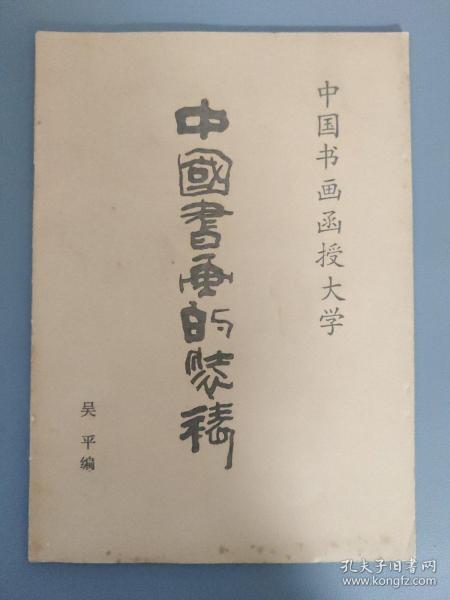 中国书画函授大学
中國書画的装裱
吴平编
孔夫子旧书网
www.kongfz.com